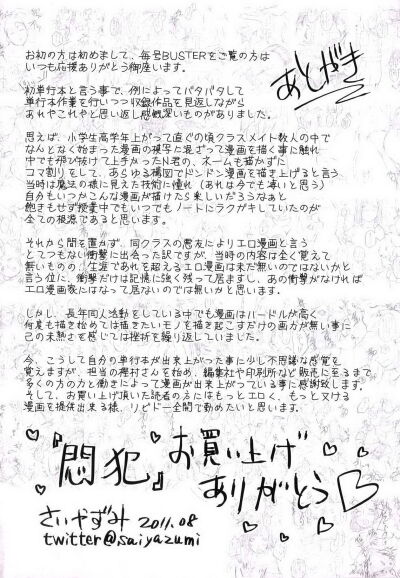 あとがき
お初の方は初めまして、毎号BUSTERをご覧の方は
いつも応援ありがとう御座います。
初単行本と言う事で、例によってバタバタして
単行本作業を行いつつ収録作品を見返しながら
あれやこれやと思い返し感慨深いものがありました。
思えば、小学生高学年上がって直ぐの頃クラスメイト数人の中で
なんとなく始まった漫画の模写に混ざって漫画を描く事に触れ
中でも飛び抜けて上手かったN君の、ネームも描かずに
コマ割りをして、あらゆる構図でドンドン漫画を描き上げると言う
当時は魔法の様に見えた技術に憧れ(あれは今でも凄いと思う)
自分もいつかこんな漫画が描けたら楽しいだろうなぁと
飽きもせず授業中でもいつでもノートにラクガキしていたのが
全ての根源であると思います。
それから間を置かず、同クラスの悪友によりエロ漫画と言う
とてつもない衝撃に出会った訳ですが、当時の内容は全く覚えて
無いものの、生涯であれを超えるエロ漫画は未だ無いのではないかと
言う位に、衝撃だけは記憶に強く残って居ますし、あの衝撃がなければ
エロ漫画家にはなって居ないのでは無いかと思います。
しかし、長年同人活動をしている中でも漫画はハードルが高く
何度も描き始めては描きたいモノを描き起こすだけの画力が無い事に
己の未熟さを感じては挫折を繰り返していました。
今、こうして自分の単行本が出来上がった事に少し不思議な感覚を
覚えますが、担当の樫村さん始め、編集社や印刷所など販売に至るまで
多くの方の力と働きによって漫画が出来上がっている事に感謝致します。
そして、お買い上げ頂いた読者の方にはもっとエロく、もっと叉ける
漫画を提供出来る様、リビドー全開で勤めたいと思います。
『悶犯』お買い上げ
ありがとう
さいやずみ 2011.08
twitter@saiyazumi